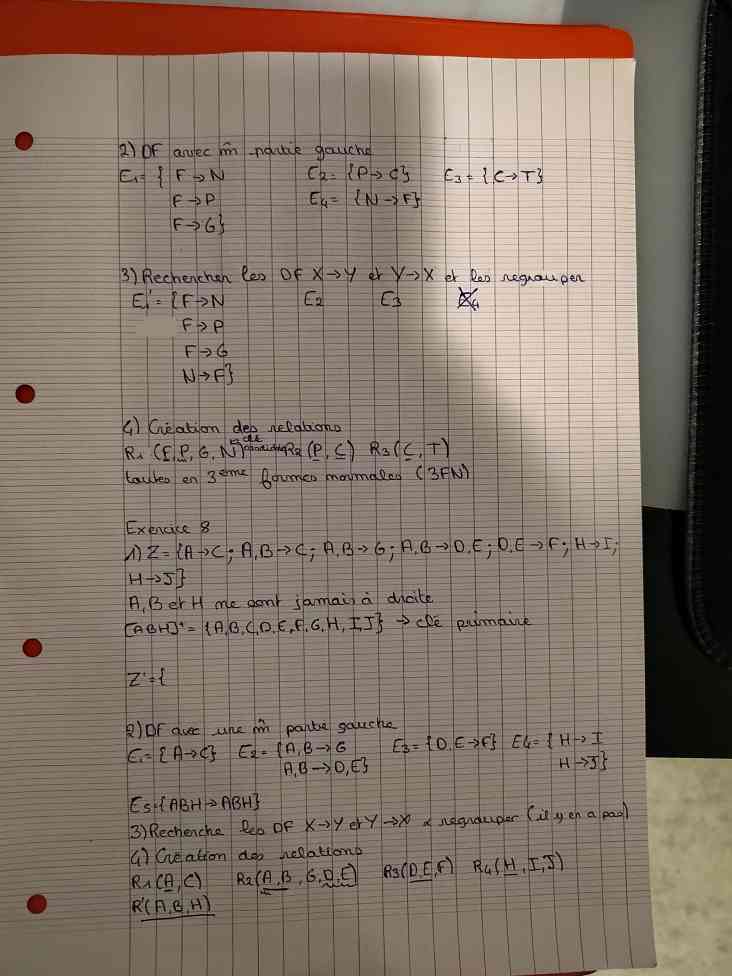 2) DF avec m̂ partie gauche
E₁ = { F → N E₂ = {P → C} E₃ = {C → T}
F → P E₄ = {N → F}
F → G}
3) Rechercher les DF X → Y et Y → X et les regrouper
E₁' = {F → N E₂ E₃
F → P
F → G
N → F}
4) Création des relations
R₁ (F, P, G, N) clé R₂ (P, C) R₃ (C, T)
toutes en 3ème formes normales (3FN)
Exercice 8
1) Z = {A → C ; A,B → C ; A,B → G ; A,B → D,E ; D,E → F ; H → I ;
H → J}
A, B et H ne sont jamais à droite
[ABH]⁺ = {A,B,C,D,E,F,G,H,I,J} → clé primaire
Z' = {
2) DF avec une m̂ partie gauche
E₁ = {A → C} E₂ = {A,B → G E₃ = {D,E → F} E₄ = {H → I
A,B → D,E} H → J}
E₅ = {ABH → ABH}
3) Recherche les DF X → Y et Y → X regrouper (il y en a pas)
4) Création des relations
R₁(A, C) R₂(A, B, G, D, E) R₃(D, E, F) R₄(H, I, J)
R'(A, B, H)